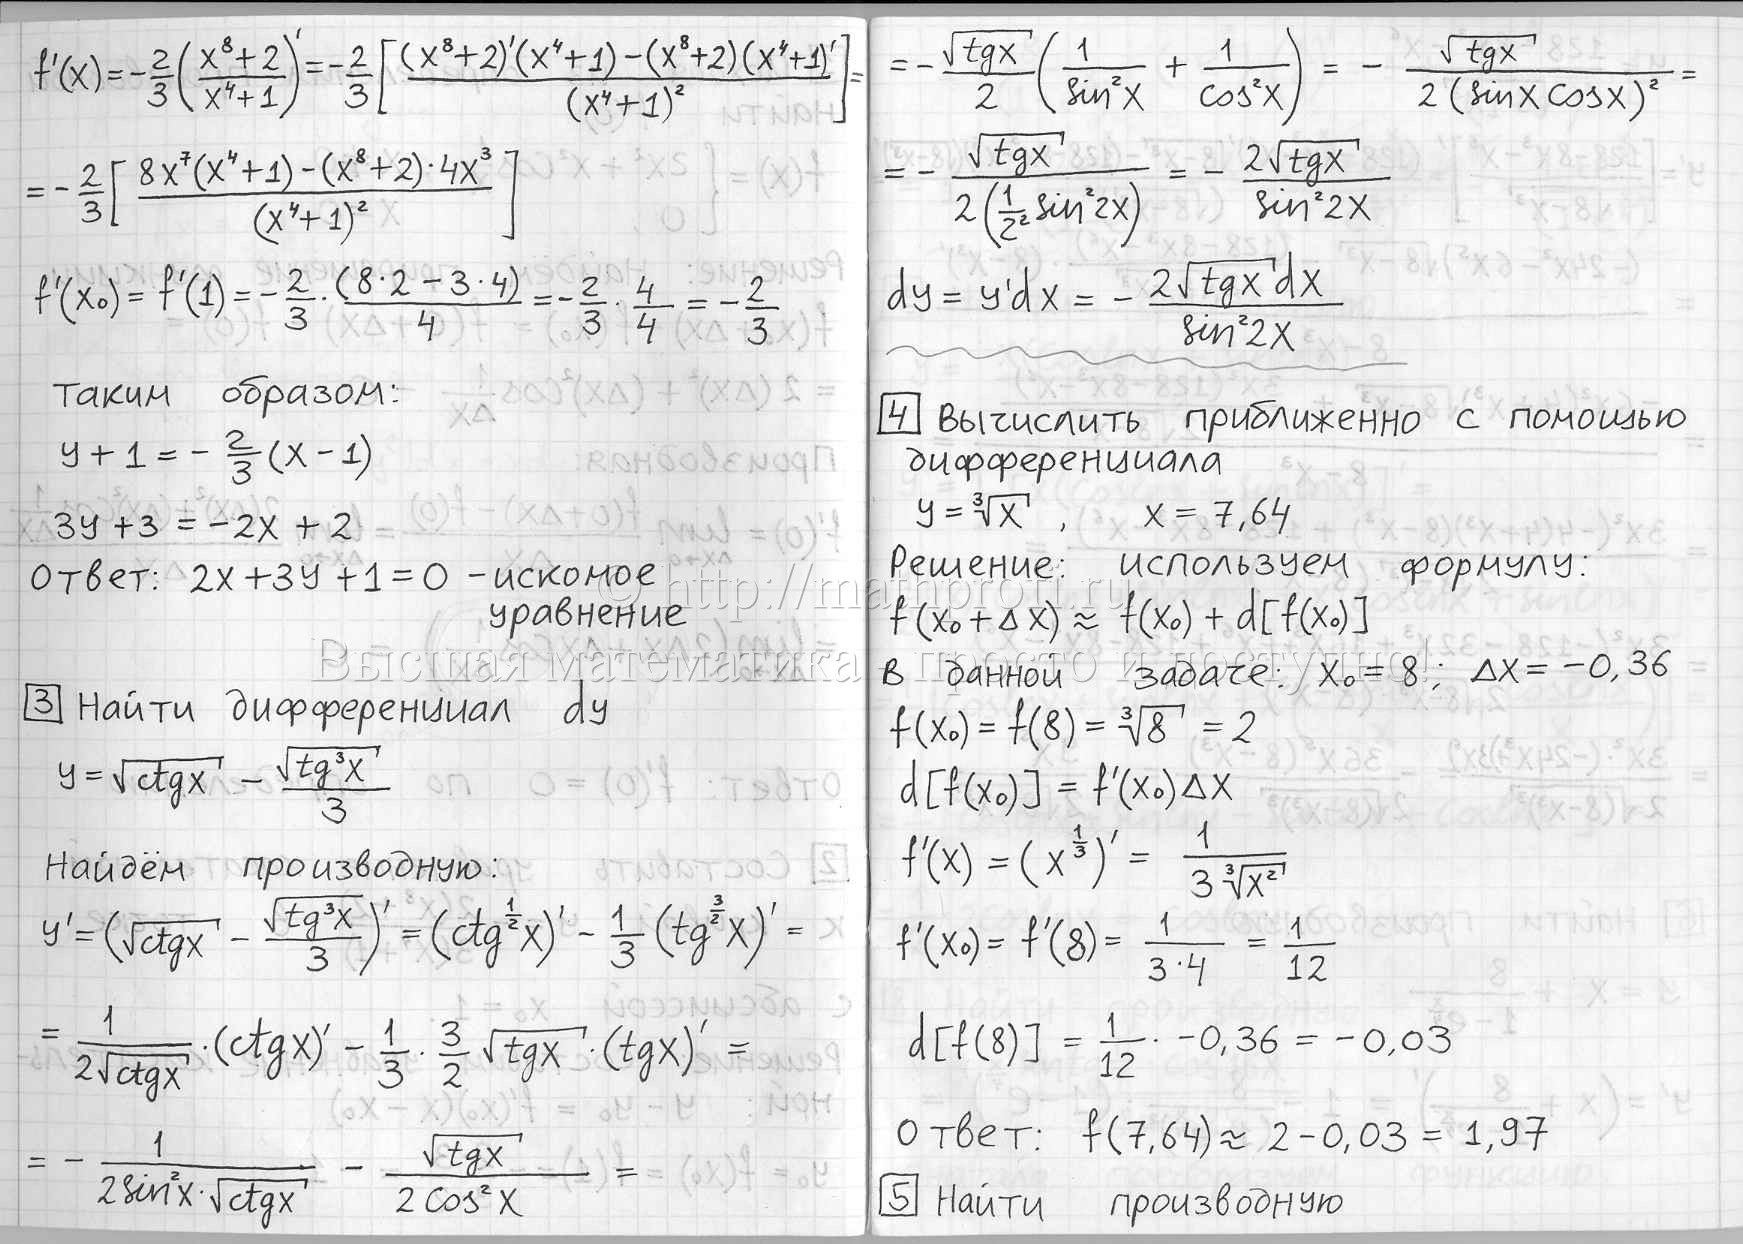 f'(x) = -2/3 ((x⁸+2)/(x⁴+1))' = -2/3 [((x⁸+2)'(x⁴+1) - (x⁸+2)(x⁴+1)')/(x⁴+1)²] =
= -2/3 [(8x⁷(x⁴+1) - (x⁸+2)·4x³)/(x⁴+1)²]
f'(x₀) = f'(1) = -2/3 · (8·2 - 3·4)/4 = -2/3 · 4/4 = -2/3
Таким образом:
y + 1 = -2/3 (x - 1)
3y + 3 = -2x + 2
Ответ: 2x + 3y + 1 = 0 - искомое
уравнение
3 Найти дифференциал dy
y = √ctgx - √tg³x/3
Найдём производную:
y' = (√ctgx - √tg³x/3)' = (ctg^(1/2) x)' - 1/3 (tg^(3/2) x)' =
= 1/(2√ctgx) · (ctgx)' - 1/3 · 3/2 √tgx · (tgx)' =
= - 1/(2sin²x·√ctgx) - √tgx/(2cos²x) =
= - √tgx/2 (1/sin²x + 1/cos²x) = - √tgx/(2(sinx cosx)²) =
= - √tgx/(2(1/2² sin²2x)) = - 2√tgx/sin²2x
dy = y'dx = - 2√tgx dx/sin²2x
4 Вычислить приближенно с помощью
дифференциала
y = ³√x , x = 7,64
Решение: используем формулу:
f(x₀ + Δx) ≈ f(x₀) + d[f(x₀)]
В данной задаче: x₀ = 8; Δx = -0,36
f(x₀) = f(8) = ³√8 = 2
d[f(x₀)] = f'(x₀)Δx
f'(x) = (x^(1/3))' = 1/(3 ³√x²)
f'(x₀) = f'(8) = 1/(3·4) = 1/12
d[f(8)] = 1/12 · -0,36 = -0,03
Ответ: f(7,64) ≈ 2 - 0,03 = 1,97
5 Найти производную
© http://mathprofi.ru
Высшая математика – просто и доступно!